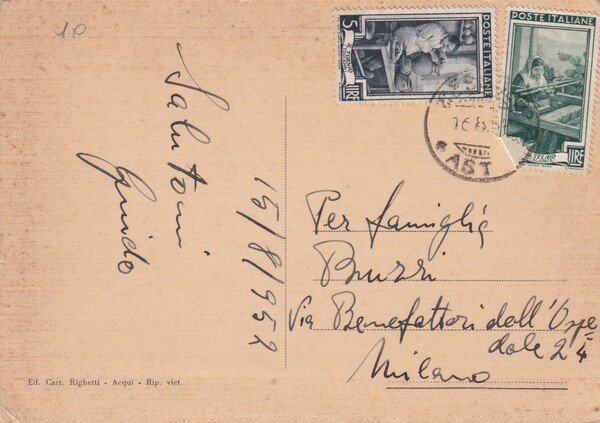 10
Salutoni
Guido
15/8/952
5 LIRE
POSTE ITALIANE
POSTE ITALIANE
LIRE
16.8.5
AST
Per famiglia
Buzzi
Via Benefattori dell'Ospe
dale 24
Milano
Ed. Cart. Righetti - Acqui - Rip. viet.